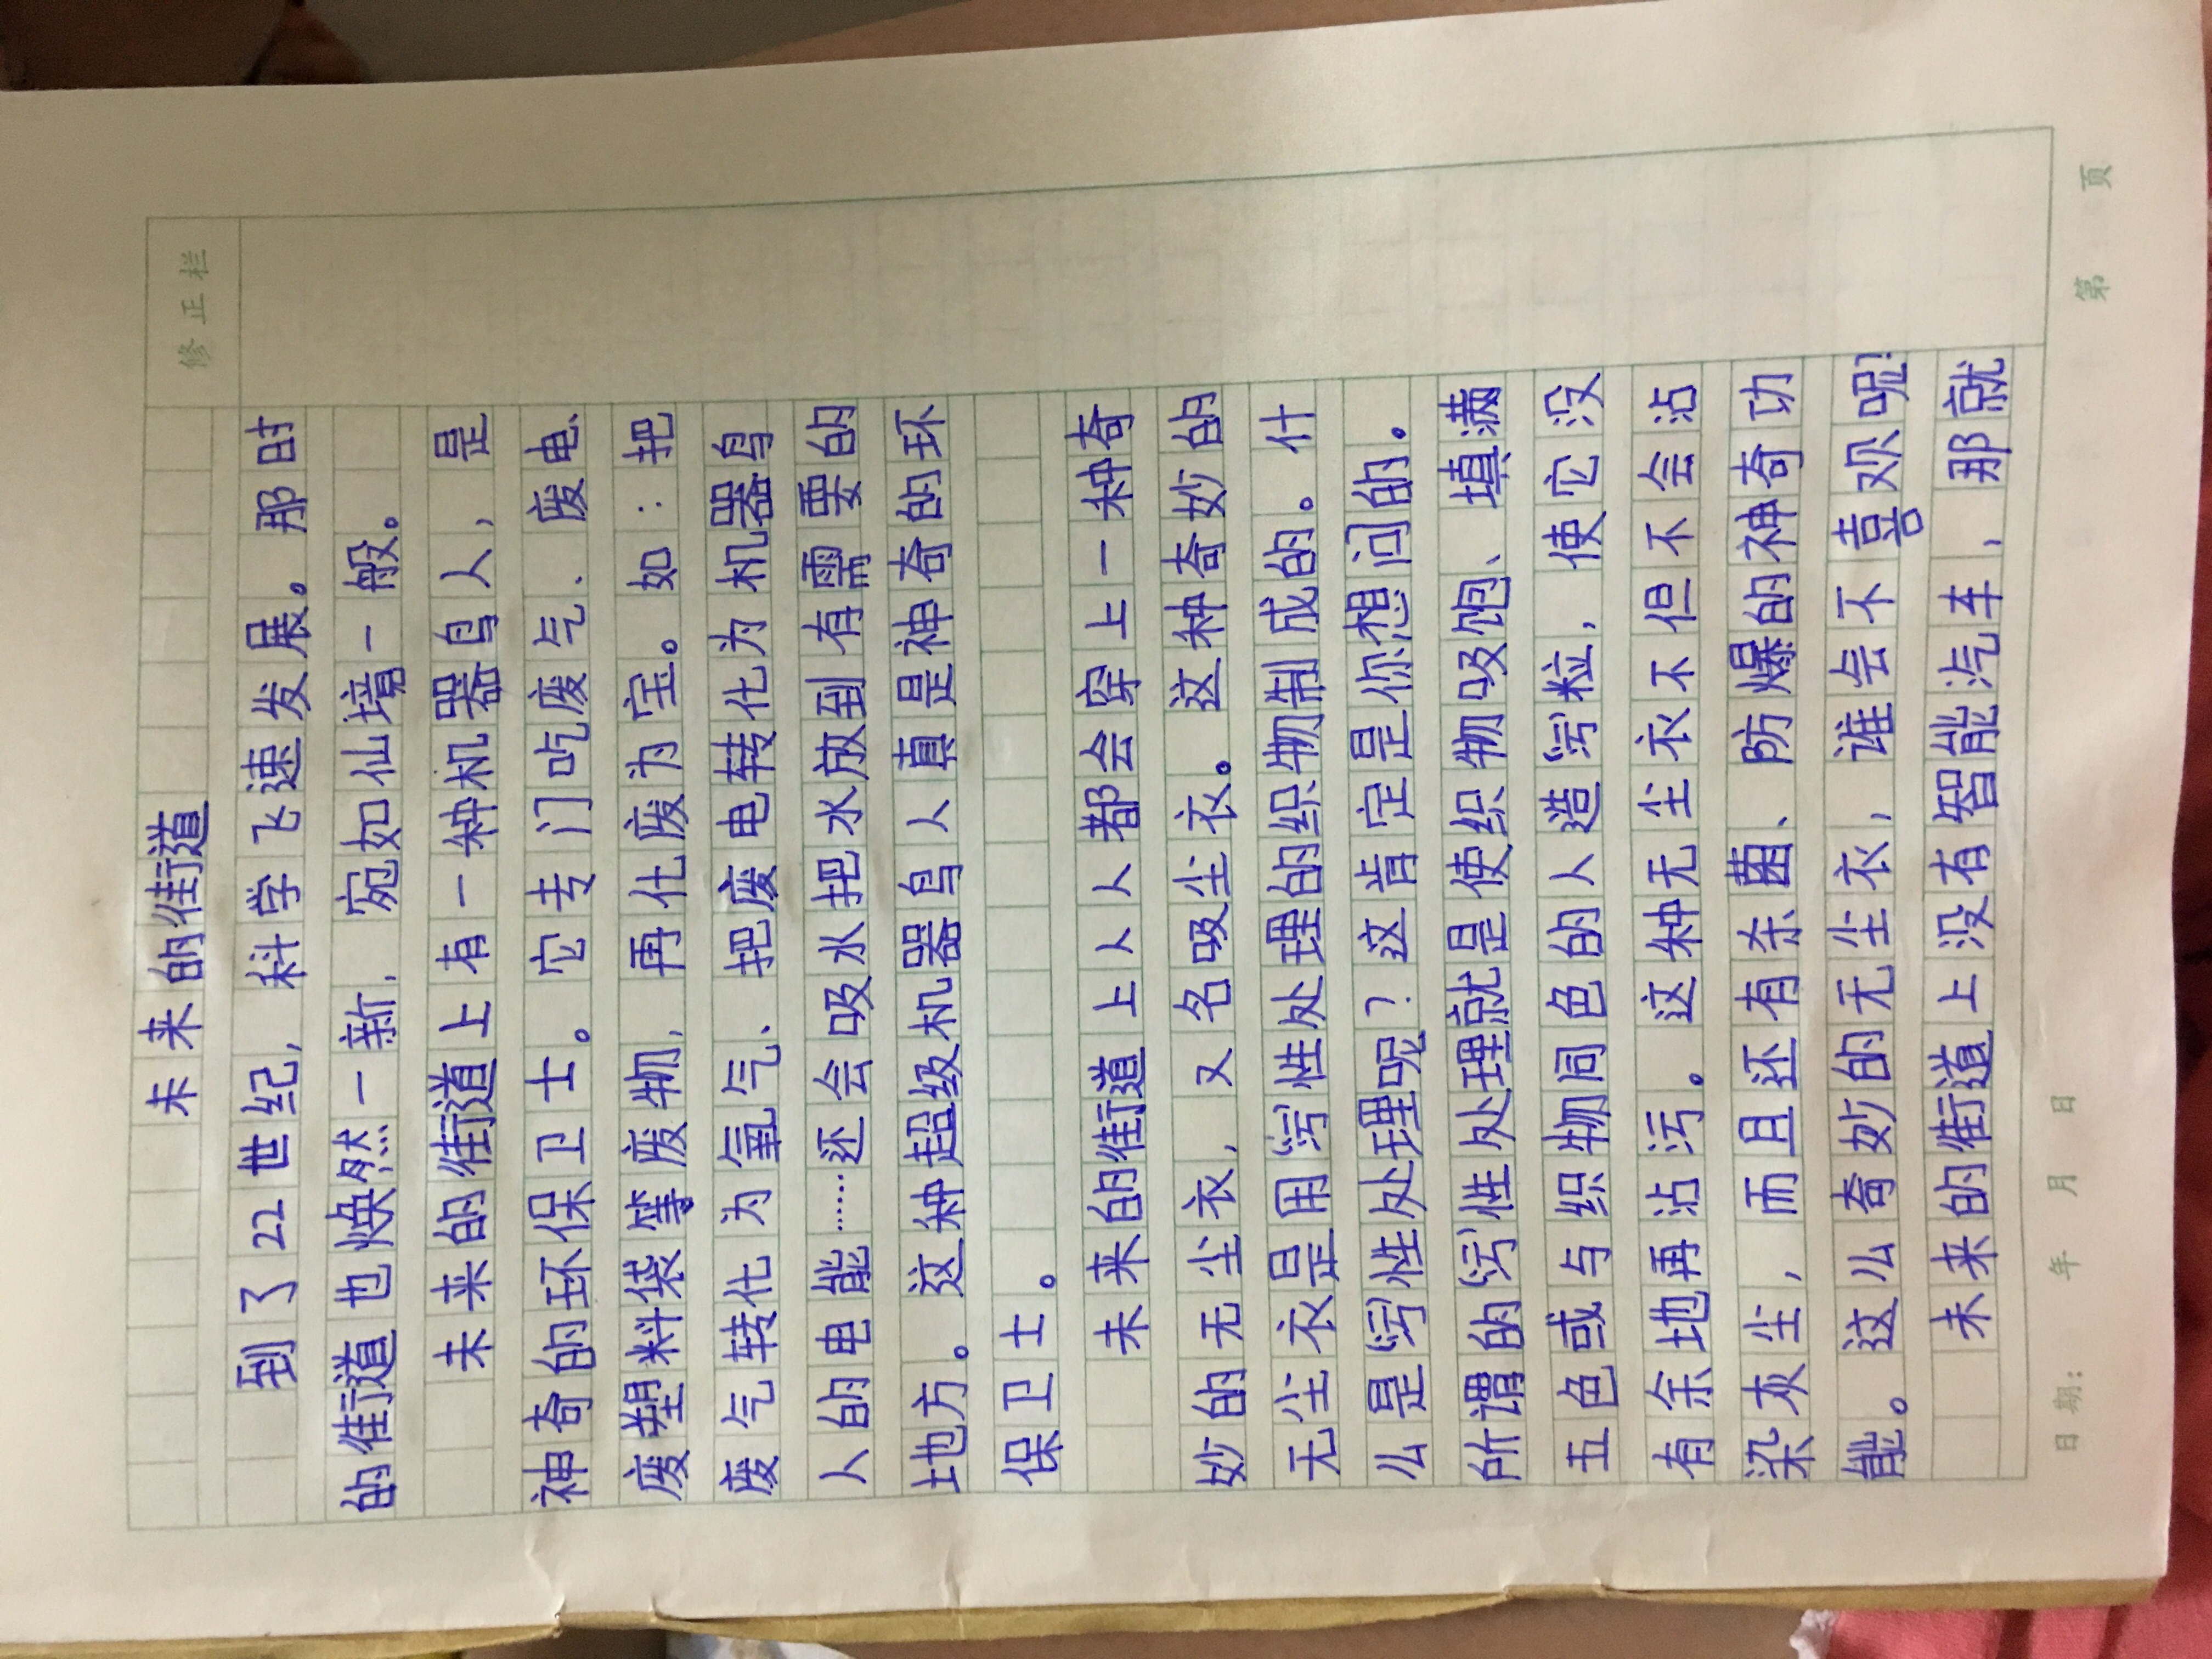 修正栏
未来的街道
到了22世纪，科学飞速发展。那时
的街道也焕然一新，宛如仙境一般。
未来的街道上有一种机器鸟人，是
神奇的环保卫士。它专门吃废气、废电、
废塑料袋等废物，再化废为宝。如：把
废气转化为氧气、把废电转化为机器鸟
人的电能……还会吸水把水放到有需要的
地方。这种超级机器鸟人真是神奇的环
保卫士。
未来的街道上人人都会穿上一种奇
妙的无尘衣，又名吸尘衣。这种奇妙的
无尘衣是用“污”性处理的织物制成的。什
么是“污”性处理呢？这肯定是你想问的。
所谓的“污”性处理就是使织物吸饱、填满
五色或与织物同色的人造“污”粒，使它没
有余地再沾污。这种无尘衣不但不会沾
染灰尘，而且还有杀菌、防爆的神奇功
能。这么奇妙的无尘衣，谁会不喜欢呢？
未来的街道上没有智能汽车，那就
日期： 年 月 日 第 页